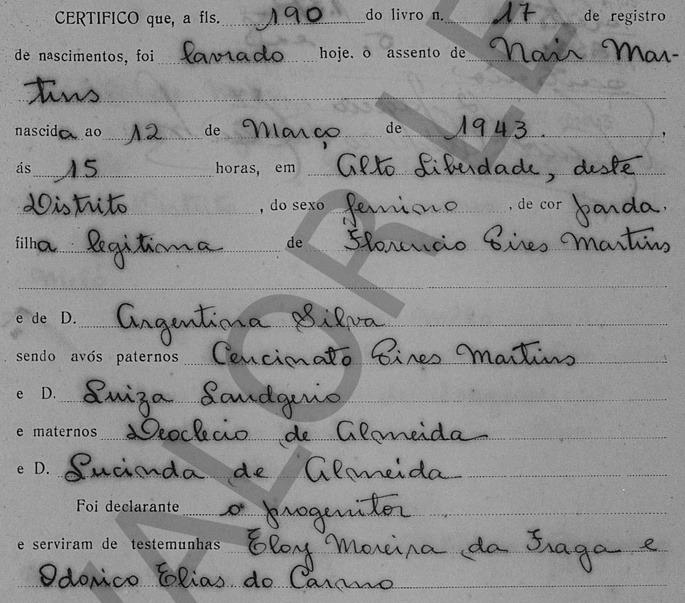 CERTIFICO que, a fls. 190 do livro n. 17 de registro
de nascimentos, foi lavrado hoje. o assento de Nair Mar-
tins
nascida ao 12 de Março de 1943. ,
ás 15 horas, em Alto Liberdade, deste
Distrito , do sexo femino , de cor parda.
filha legitima de Florencio Eires Martins
e de D. Argentina Silva
sendo avós paternos Cencinato Eires Martins
e D. Luiza Landgerio
e maternos Deoclecio de Almeida
e D. Lucinda de Almeida
Foi declarante o progenitor
e serviram de testemunhas Eloy Moreira da Fraga e
Odorico Elias do Carmo
VALOR LE